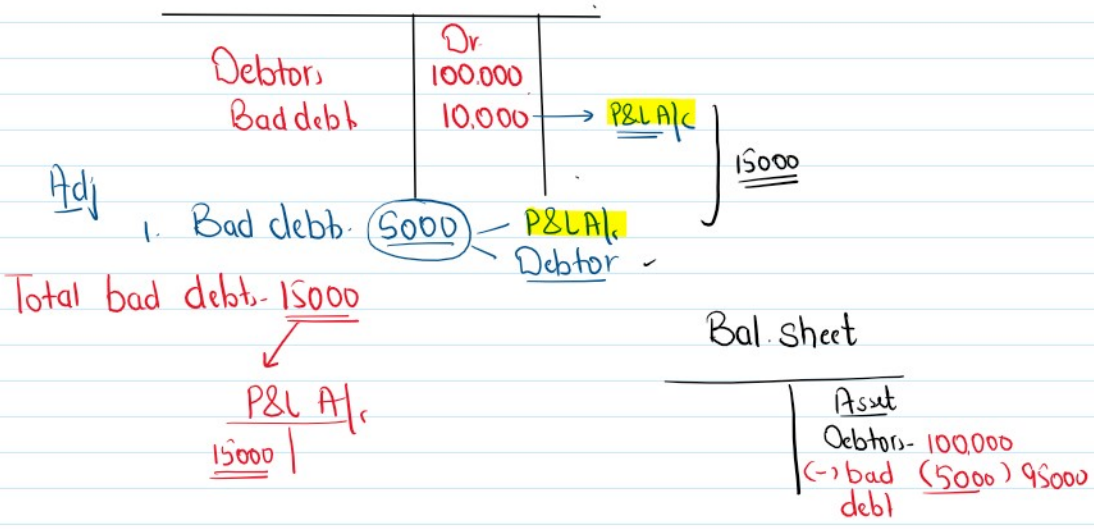 Dr.
Debtors 100.000
Bad debt 10,000 → P&L A/c
15000
Adj
1. Bad debts. 5000 P&L A/c
Debtor
Total bad debts - 15000
P&L A/c
15000
Bal. sheet
Asset
Debtors - 100,000
(-) bad (5000) 95000
debt